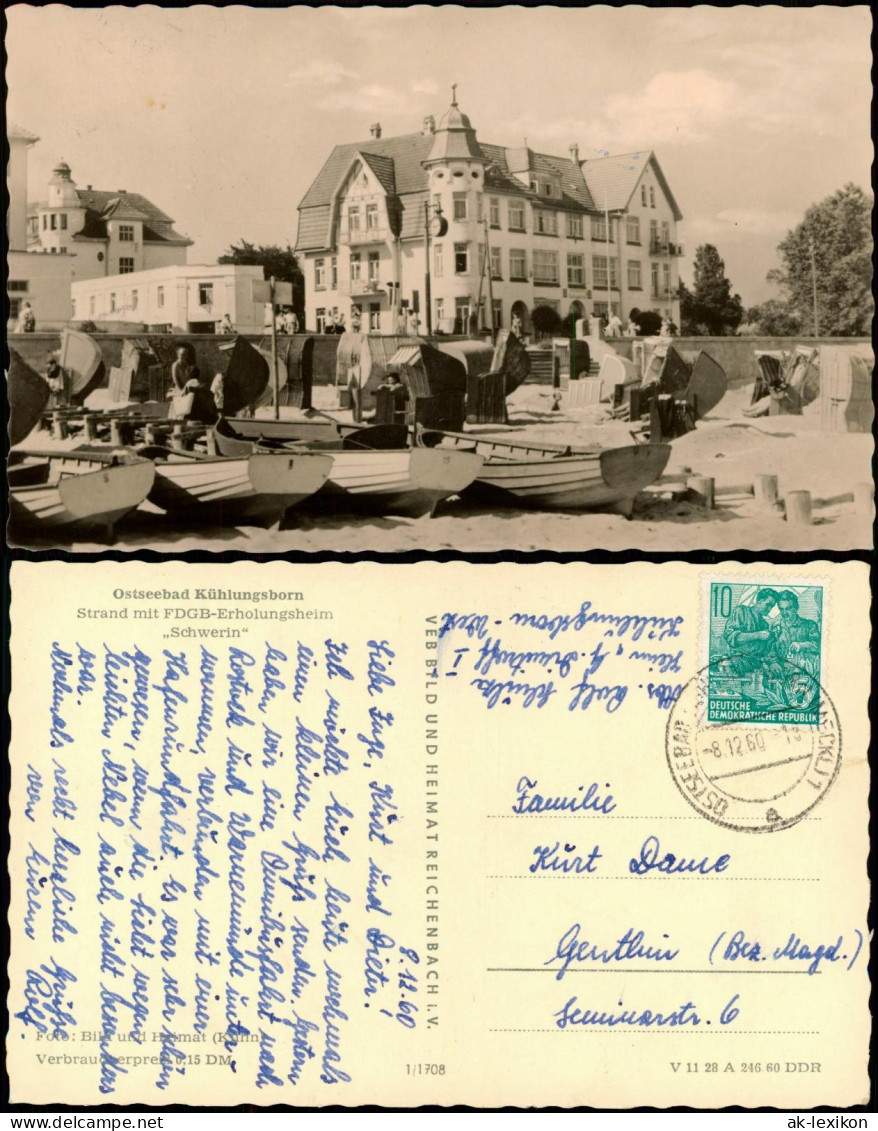 Ostseebad Kühlungsborn
Strand mit FDGB-Erholungsheim
„Schwerin“
8.12.60
Liebe Inge, Kurt und Dieter!
Ich möchte Euch heute nochmals
einen kleinen Gruß senden. Gestern
haben wir eine Omnibusfahrt nach
Rostock und Warnemünde unter-
nommen, verbunden mit einer
Hafenrundfahrt. Es war sehr schön
gewesen, wenn die Sicht wegen
leichten Nebel auch nicht besonders
war.
Nochmals recht herzliche Grüße
von Eurem Rolf
Foto: Bild und Heimat (Kühn)
Verbraucherpreis 0,15 DM
1/1708
VEB BILD UND HEIMAT REICHENBACH i. V.
Abs. Rolf
Heim „G. Dimitroff I
Kühlungsborn - West
10
5
DEUTSCHE
DEMOKRATISCHE REPUBLIK
OSTSEEBAD (MECKL) 1
-8.12.60
a
Familie
Kurt Dame
Genthin (Bez. Magd.)
Seminarstr. 6
V 11 28 A 246 60 DDR
ak-lexikon